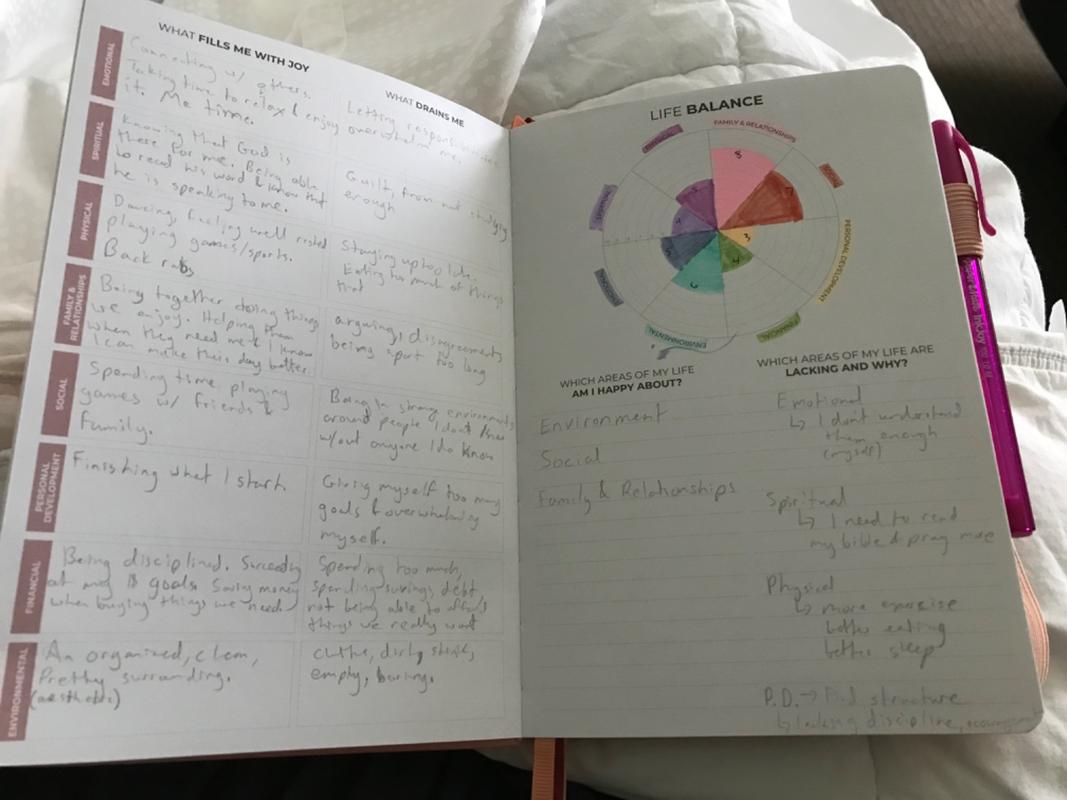 WHAT FILLS ME WITH JOY
EMOTIONAL
Connecting w/ others.
Taking time to relax & enjoy
it. Me time.
SPIRITUAL
Knowing that God is
there for me. Being able
to read his word & know that
he is speaking to me.
PHYSICAL
Dancing, feeling well rested
playing games/sports.
Back rubs
FAMILY &
RELATIONSHIPS
Being together doing things
we enjoy. Helping them
when they need me & know
I can make their day better.
SOCIAL
Spending time playing
games w/ friends &
Family.
PERSONAL
DEVELOPMENT
Finishing what I start.
FINANCIAL
Being disciplined. Succeeding
at my $ goals. Saving money
when buying things we need
ENVIRONMENTAL
An organized, clean,
Pretty surrounding.
(aesthetic)
WHAT DRAINS ME
Letting responsibilities
overwhelm me.
Guilt from not studying
enough
Staying up too late.
Eating too much of things
that
arguing, disagreements
being apart too long
Being in strong environments
around people I don't know
w/out anyone I do know
Giving myself too many
goals & overwhelming
myself.
Spending too much,
spending savings, debt
not being able to afford
things we really want
dirty
empty, boring.
LIFE BALANCE
FAMILY & RELATIONSHIPS
SOCIAL
PERSONAL DEVELOPMENT
FINANCIAL
ENVIRONMENTAL
EMOTIONAL
8
7
3
4
6
WHICH AREAS OF MY LIFE
AM I HAPPY ABOUT?
Environment
Social
Family & Relationships
WHICH AREAS OF MY LIFE ARE
LACKING AND WHY?
Emotional
↳ I don't understand
them enough
(myself)
Spiritual
↳ I need to read
my bible & pray more
Physical
↳ more exercise
better eating
better sleep
P.D. → Find structure
↳ lacking discipline,